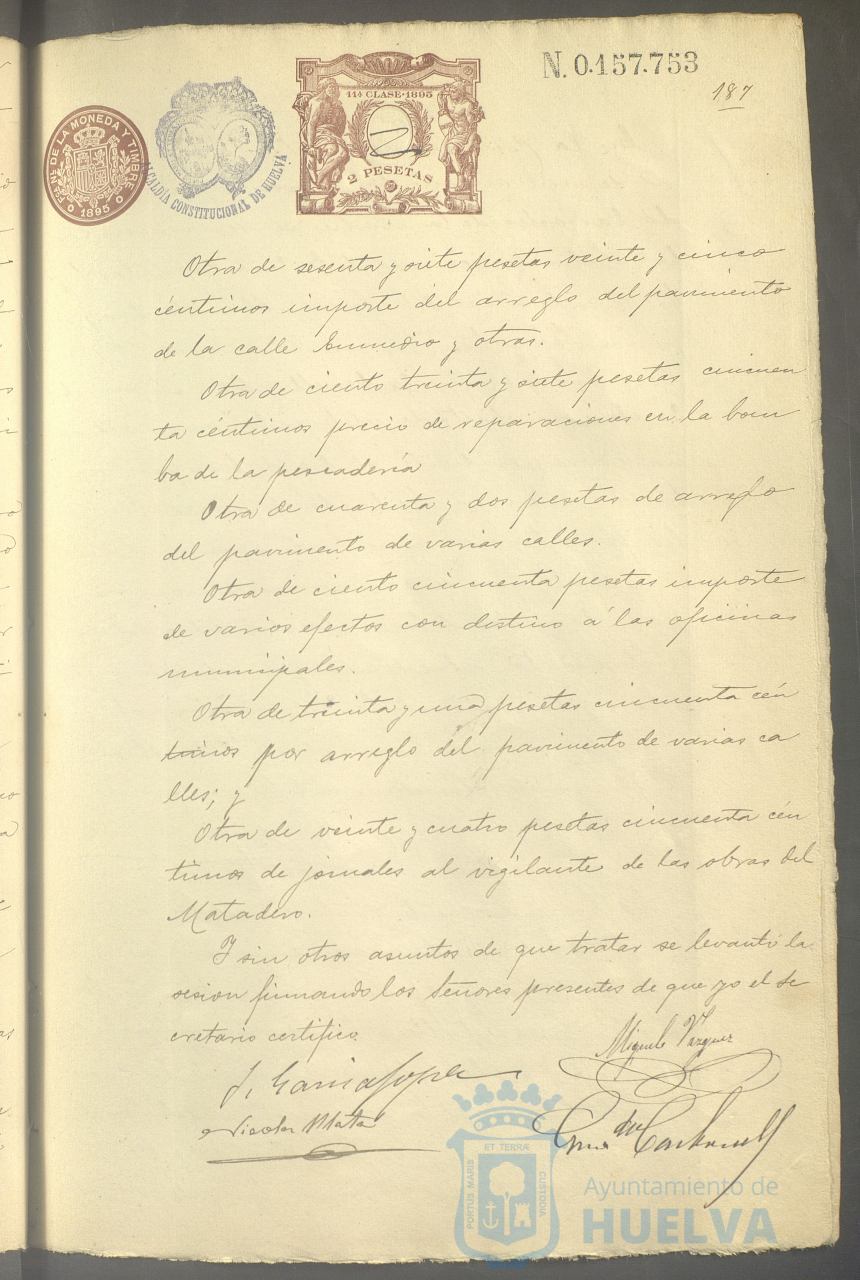 N. 0.157.753
187
FÁB. NAL. DE LA MONEDA Y TIMBRE
1895
ALCALDÍA CONSTITUCIONAL DE HUELVA
11ª CLASE·1895
2 PESETAS
Otra de sesenta y siete pesetas veinte y cinco
céntimos importe del arreglo del pavimento
de la calle Enmedio y otras.
Otra de ciento treinta y siete pesetas cincuen
ta céntimos precio de reparaciones en la bom
ba de la pescadería
Otra de cuarenta y dos pesetas de arreglo
del pavimento de varias calles.
Otra de ciento cincuenta pesetas importe
de varios efectos con destino á las oficinas
municipales.
Otra de treinta y una pesetas cincuenta cén
timos por arreglo del pavimento de varias ca
lles; y
Otra de veinte y cuatro pesetas cincuenta cén
timos de jornales al vigilante de las obras del
Matadero.
Y sin otros asuntos de que tratar se levantó la
sesion firmando los Señores presentes de que yo el se
cretario certifico.
Miguel Vazquez
J. Garcia Lopez
Nicolas Mata
ET TERRÆ
PORTUS MARIS
CUSTODIA
Ayuntamiento de
HUELVA